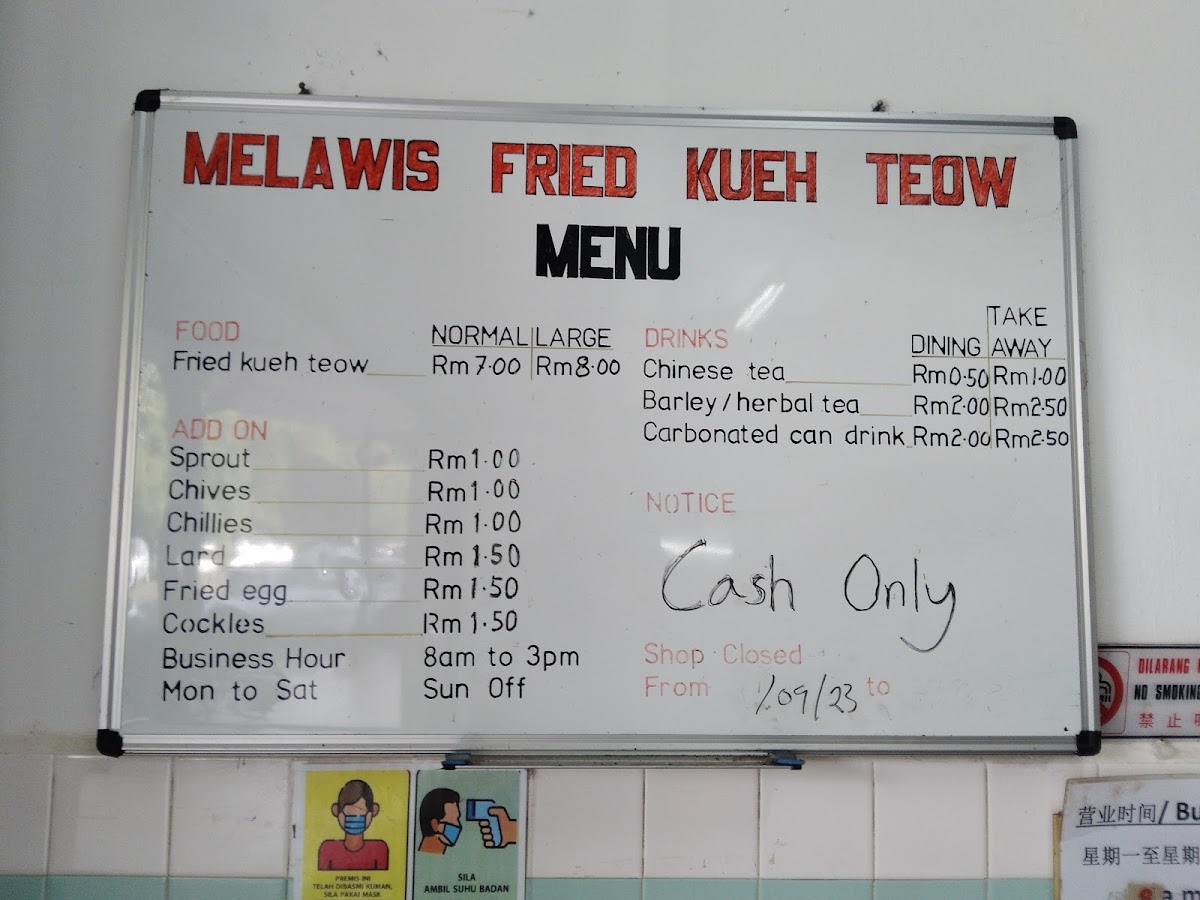 MELAWIS FRIED KUEH TEOW
MENU
FOOD NORMAL LARGE
Fried kueh teow Rm7.00 Rm8.00
ADD ON
Sprout Rm1.00
Chives Rm1.00
Chillies Rm1.00
Lard Rm1.50
Fried egg Rm1.50
Cockles Rm1.50
Business Hour 8am to 3pm
Mon to Sat Sun Off
DRINKS DINING TAKE AWAY
Chinese tea Rm0.50 Rm1.00
Barley/herbal tea Rm2.00 Rm2.50
Carbonated can drink Rm2.00 Rm2.50
NOTICE
Cash Only
Shop Closed
From 1.09/23 to
DILARANG
NO SMOKING
禁止
PREMIS INI
TELAH DIBASMI KUMAN,
SILA PAKAI MASK
SILA
AMBIL SUHU BADAN
营业时间/ Bu
星期一至星期
8 a.m